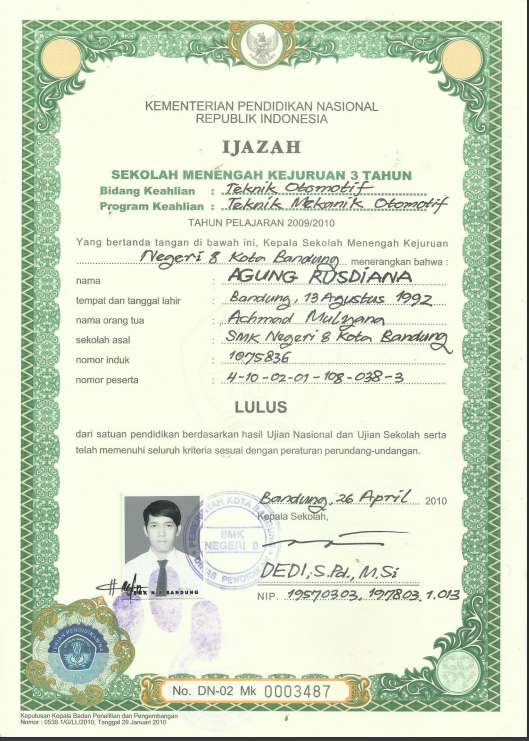 KEMENTERIAN PENDIDIKAN NASIONAL
REPUBLIK INDONESIA
IJAZAH
SEKOLAH MENENGAH KEJURUAN 3 TAHUN
Bidang Keahlian : Teknik Otomotif
Program Keahlian : Teknik Mekanik Otomotif
TAHUN PELAJARAN 2009/2010
Yang bertanda tangan di bawah ini, Kepala Sekolah Menengah Kejuruan
Negeri 8 Kota Bandung menerangkan bahwa :
nama : AGUNG RUSDIANA
tempat dan tanggal lahir : Bandung, 13 Agustus 1992
nama orang tua : Achmad Mulyana
sekolah asal : SMK Negeri 8 Kota Bandung
nomor induk : 1075836
nomor peserta : 4-10-02-01-108-038-3
LULUS
dari satuan pendidikan berdasarkan hasil Ujian Nasional dan Ujian Sekolah serta
telah memenuhi seluruh kriteria sesuai dengan peraturan perundang-undangan.
Bandung, 26 April 2010
Kepala Sekolah,
KOTA
SMK
NEGERI 8
DINAS PENDIDIKAN
DEDI, S.Pd., M.Si
BANDUNG
NIP. 19570303, 197803, 1.013
No. DN-02 Mk 0003487
Keputusan Kepala Badan Penelitian dan Pengembangan
Nomor : 0538.1/G/LL/2010, Tanggal 29 Januari 2010